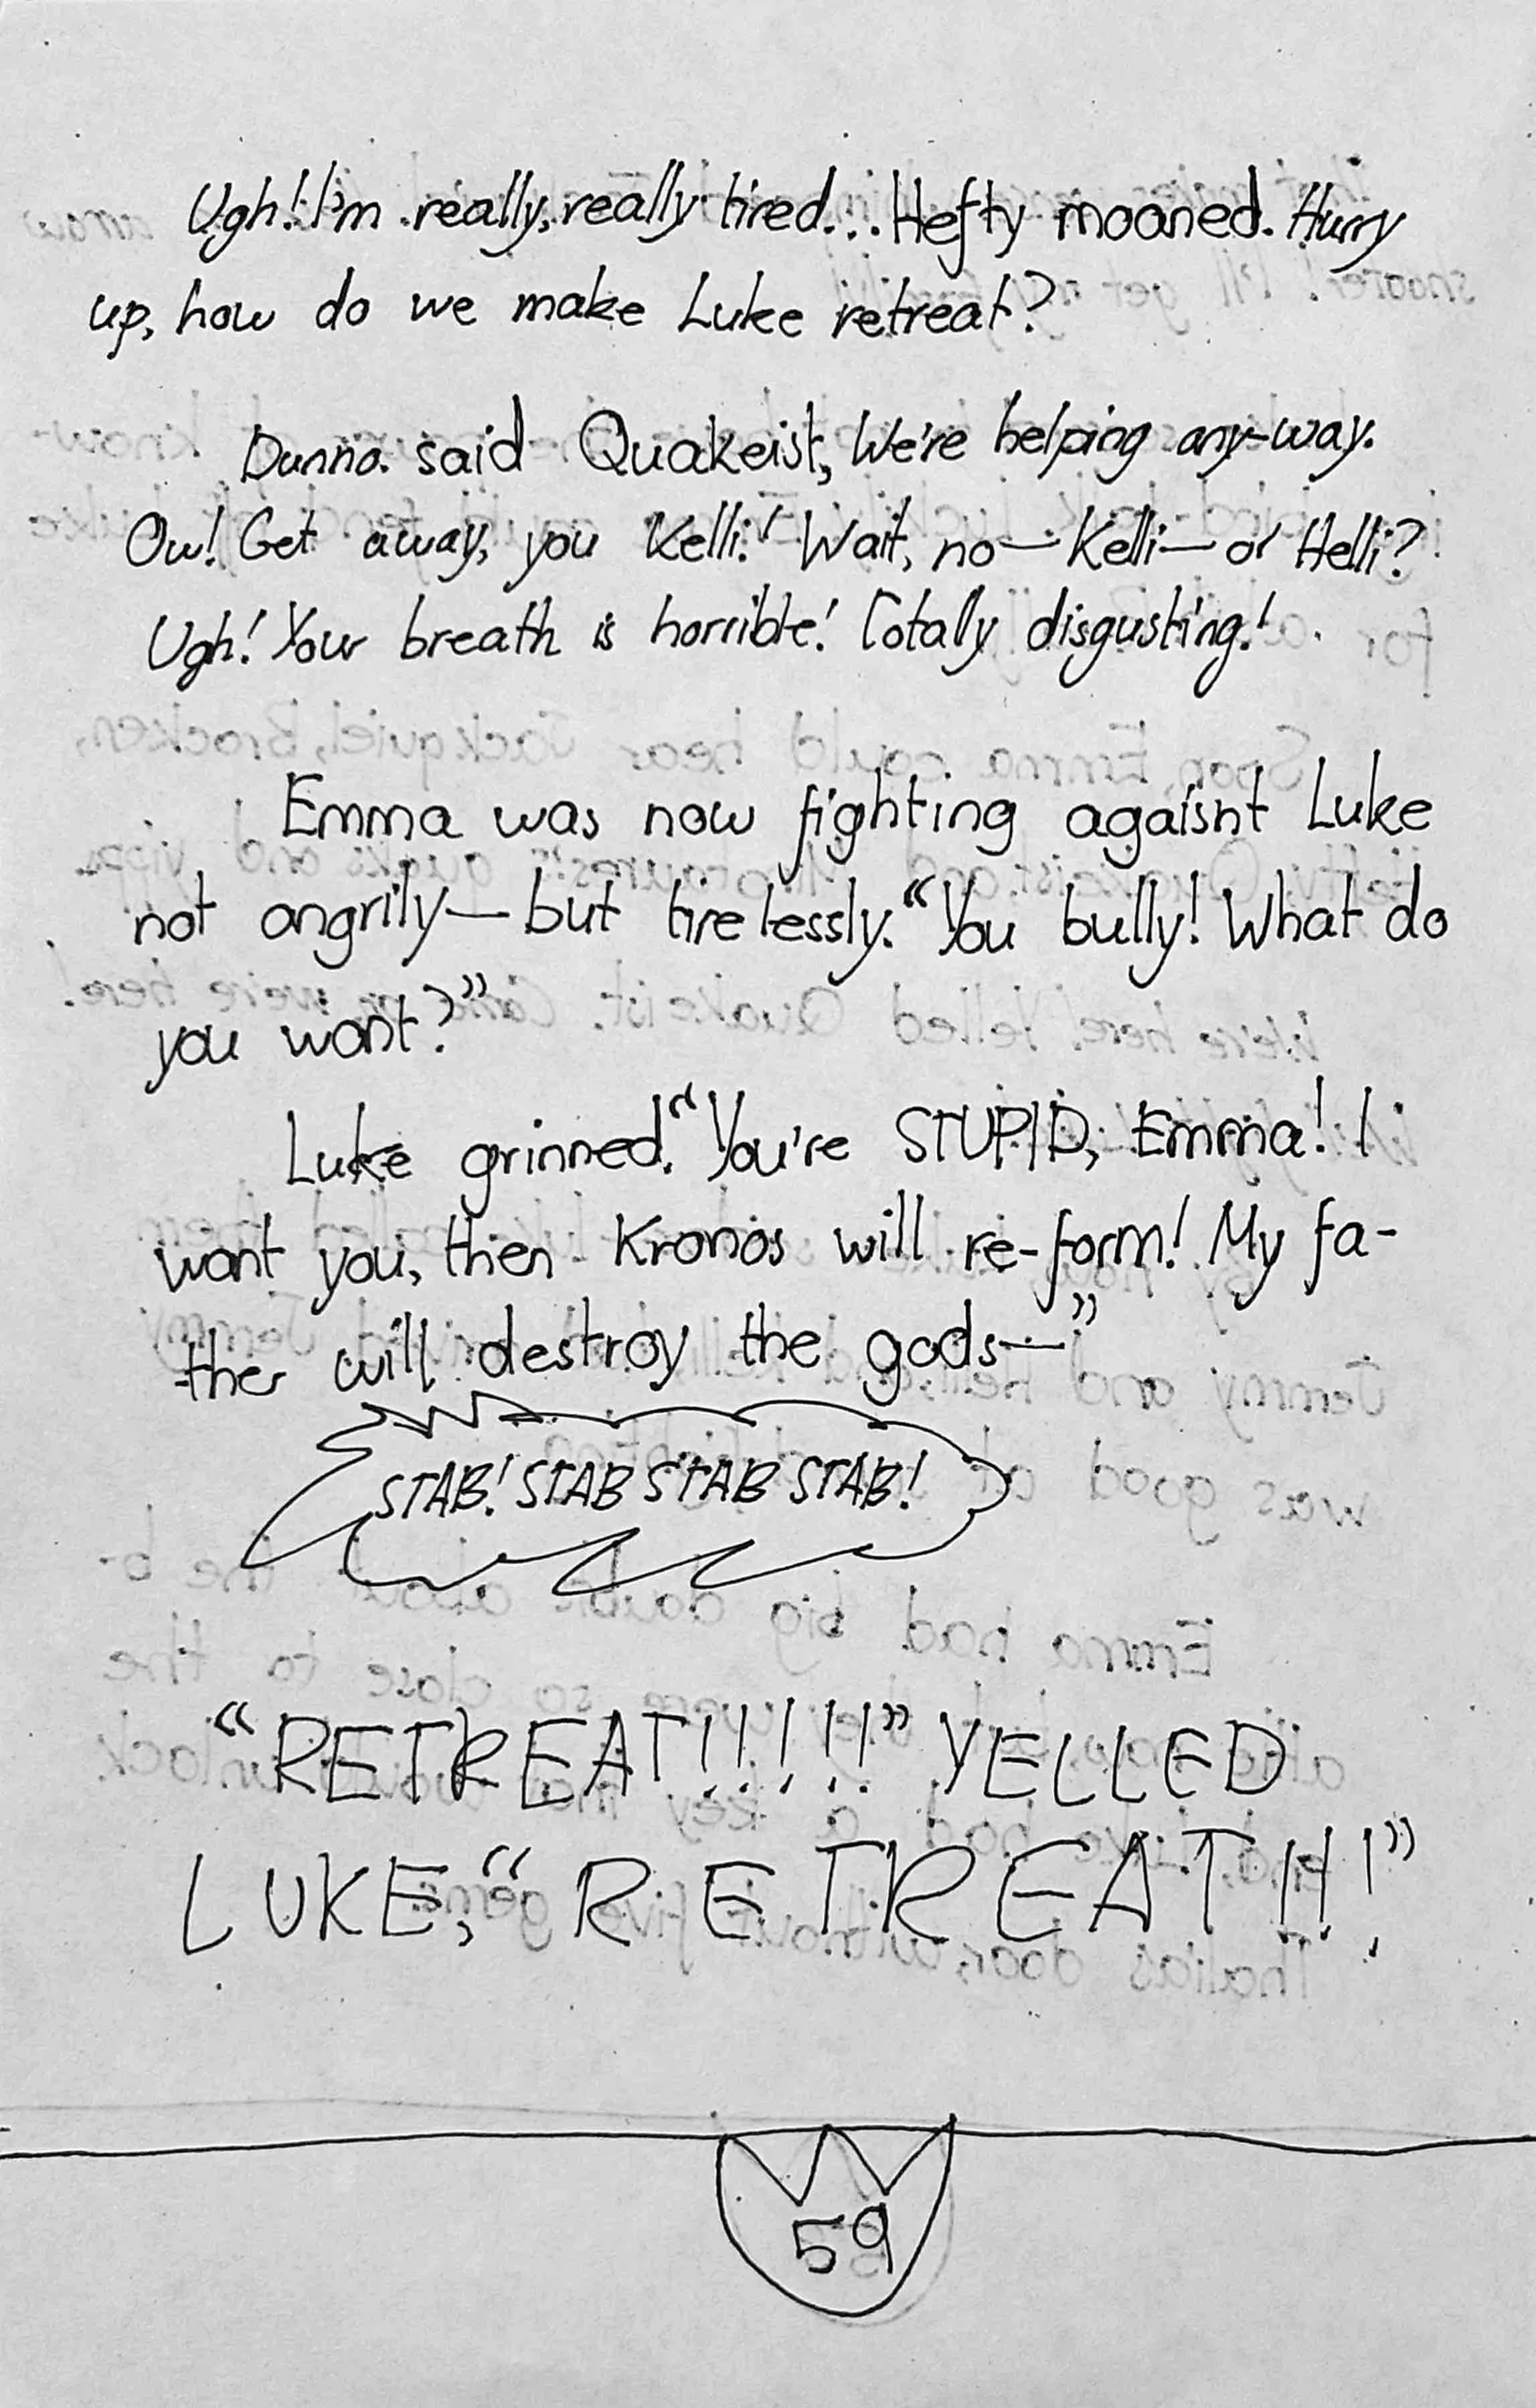 Ugh! I'm really, really tired... Hefty moaned. Hurry
up, how do we make Luke retreat?
Dunno. said Quakeist, We're helping any-way.
Ow! Get away, you Kelli! Wait, no—Kelli—or Helli?
Ugh! Your breath is horrible! Totally disgusting!
Emma was now fighting agaisnt Luke
not angrily—but tirelessly. “You bully! What do
you want?”
Luke grinned. “You're STUPID, Emma! I
want you, then Kronos will re-form! My fa-
ther will destroy the gods—”
STAB! STAB STAB STAB!
“RETREAT!!!!!” YELLED
LUKE, “RETREAT!!!”
59